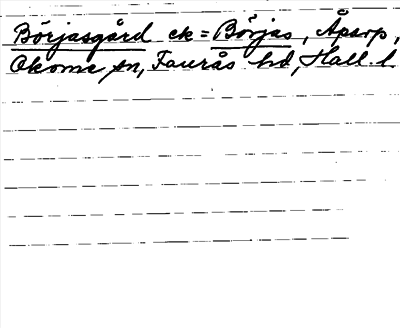 Börjasgård ek = Börjas, Åparp,
Okome sn, Faurås hd, Hall. l